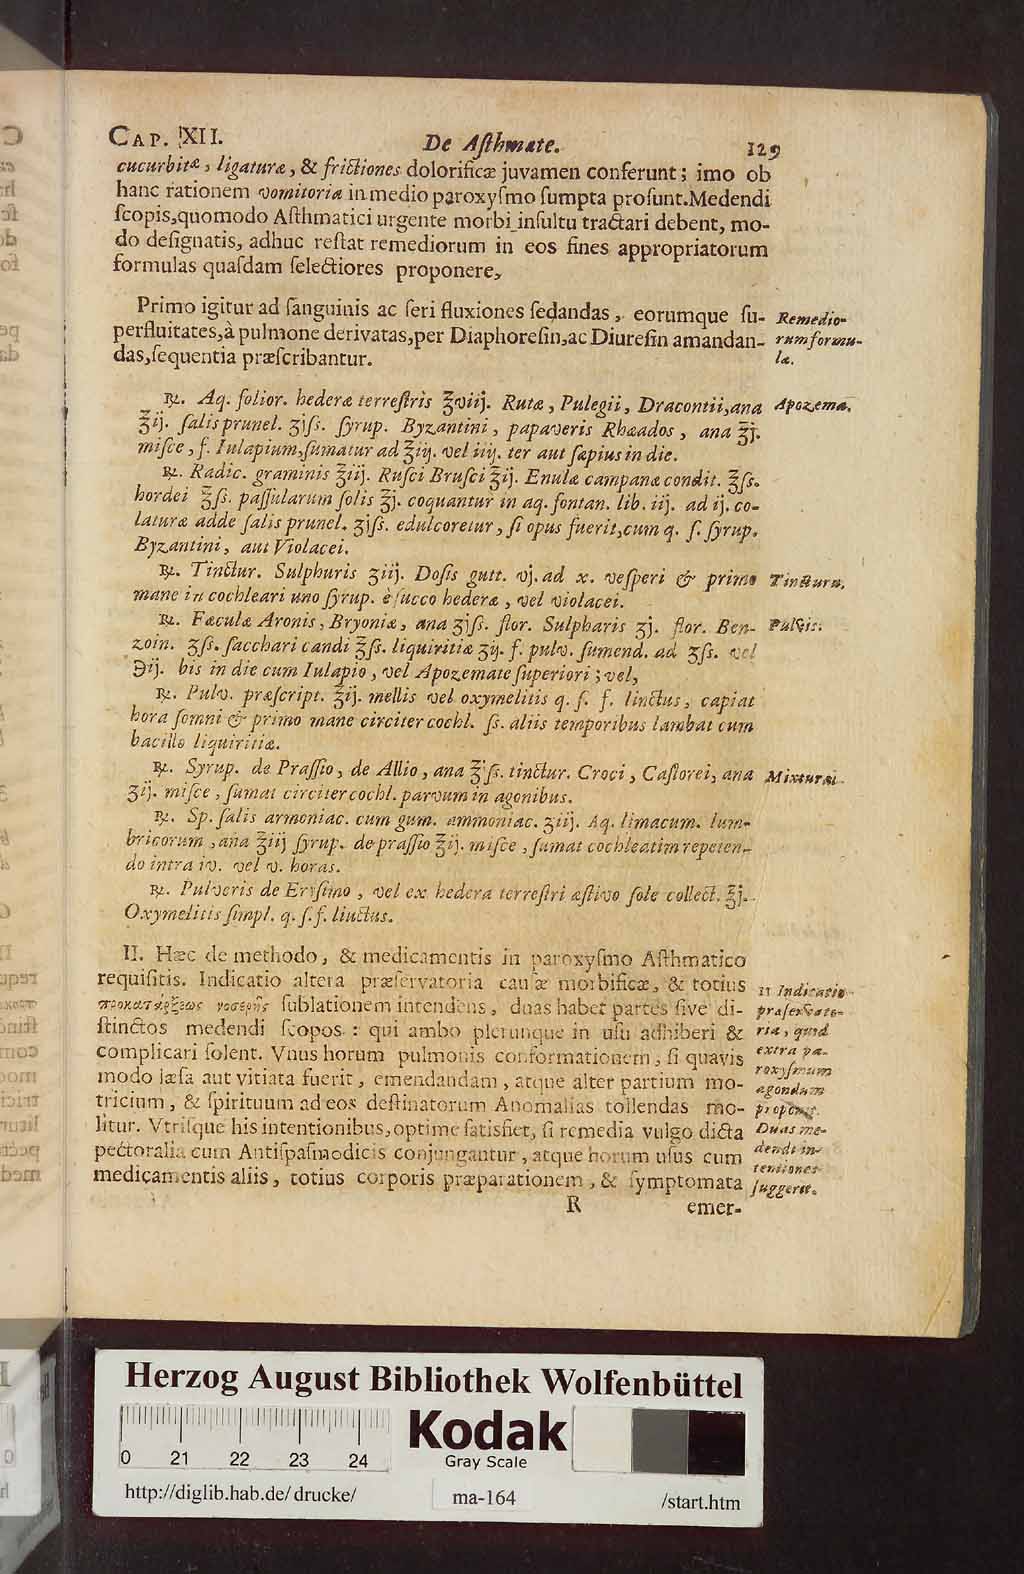 CAP. XII. De Aſthmate. 129
cucurbitæ, ligaturæ, & frictiones dolorificæ juvamen conferunt; imo ob
hanc rationem vomitoria in medio paroxyſmo ſumpta proſunt. Medendi
ſcopis, quomodo Aſthmatici urgente morbi inſultu tractari debent, mo-
do deſignatis, adhuc reſtat remediorum in eos fines appropriatorum
formulas quaſdam ſelectiores proponere,
Primo igitur ad ſanguinis ac ſeri fluxiones ſedandas, eorumque ſu-
perfluitates, à pulmone derivatas, per Diaphoreſin, ac Diureſin amandan-
das, ſequentia præſcribantur.
Remedio-
rum formu-
la.
℞. Aq. folior. hederæ terreſtris ℥viij. Rutæ, Pulegii, Dracontii, ana
℥ij. ſalis prunel. ʒjſs. ſyrup. Byzantini, papaveris Rhœados, ana ℥j.
miſce, f. Iulapium, ſumatur ad ℥iij. vel iiij. ter aut ſæpius in die.
Apozema.
℞. Radic. graminis ℥iij. Ruſci Bruſci ℥ij. Enulæ campanæ condit. ℥ſs.
hordei ℥ſs. paſſularum ſolis ℥j. coquantur in aq. fontan. lib. iij. ad ij. co-
laturæ adde ſalis prunel. ʒjſs. edulcoretur, ſi opus fuerit, cum q. ſ. ſyrup.
Byzantini, aut Violacei.
℞. Tinctur. Sulphuris ʒiij. Doſis gutt. vj. ad x. veſperi & primo
mane in cochleari uno ſyrup. è ſucco hederæ, vel violacei.
Tinctura.
℞. Fæculæ Aronis, Bryoniæ, ana ʒjſs. flor. Sulphuris ʒj. flor. Ben-
zoin. ʒſs. ſacchari candi ℥ſs. liquiritiæ ʒij. f. pulv. ſumend. ad ʒſs. vel
℈ij. bis in die cum Iulapio, vel Apozemate ſuperiori; vel,
Pulvis.
℞. Pulv. præſcript. ℥ij. mellis vel oxymelitis q. ſ. f. linctus, capiat
hora ſomni & primo mane circiter cochl. ſs. aliis temporibus lambat cum
bacillo liquiritiæ.
℞. Syrup. de Praſſio, de Allio, ana ℥jſs. tinctur. Croci, Caſtorei, ana
ʒij. miſce, ſumat circiter cochl. parvum in agonibus.
Mixturæ.
℞. Sp. ſalis armoniac. cum gum. ammoniac. ʒiij. Aq. limacum. lum-
bricorum, ana ℥iij ſyrup. de praſſio ℥ij. miſce, ſumat cochleatim repeten-
do intra iv. vel v. horas.
℞. Pulveris de Eryſimo, vel ex hedera terreſtri æſtivo ſole collect. ℥j.
Oxymelitis ſimpl. q. ſ. f. liuctus.
II. Hæc de methodo, & medicamentis in paroxyſmo Aſthmatico
requiſitis. Indicatio altera præſervatoria cauſæ morbificæ, & totius
προκατάρξεως νοσερῆς ſublationem intendens, duas habet partes ſive di-
ſtinctos medendi ſcopos: qui ambo plerunque in uſu adhiberi &
complicari ſolent. Vnus horum pulmonis conformationem, ſi quavis
modo læſa aut vitiata fuerit, emendandam, atque alter partium mo-
tricium, & ſpirituum ad eos deſtinatorum Anomalias tollendas mo-
litur. Vtriſque his intentionibus, optime ſatisfiet, ſi remedia vulgo dicta
pectoralia cum Antiſpaſmodicis conjungantur, atque horum uſus cum
medicamentis aliis, totius corporis præparationem, & ſymptomata
II Indicatio
præſervato-
ria, quid
extra pa-
roxyſmum
agendum
proponit.
Duas me-
dendi in-
tentiones
ſuggerit.
R emer-
Herzog August Bibliothek Wolfenbüttel
0 21 22 23 24
Kodak
Gray Scale
http://diglib.hab.de/drucke/ ma-164 /start.htm